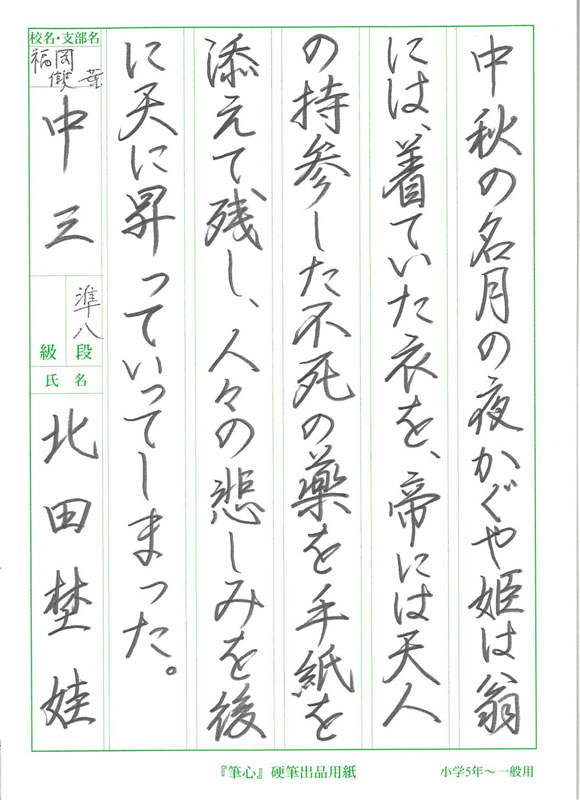 中秋の名月の夜かぐや姫は翁
には、着ていた衣を、帝には天人
の持参した不死の薬を手紙を
添えて残し、人々の悲しみを後
に天に昇っていってしまった。
校名・支部名
福岡
葉
中三
準八
段
級
氏名
北田埜娃
『筆心』硬筆出品用紙
小学5年～一般用